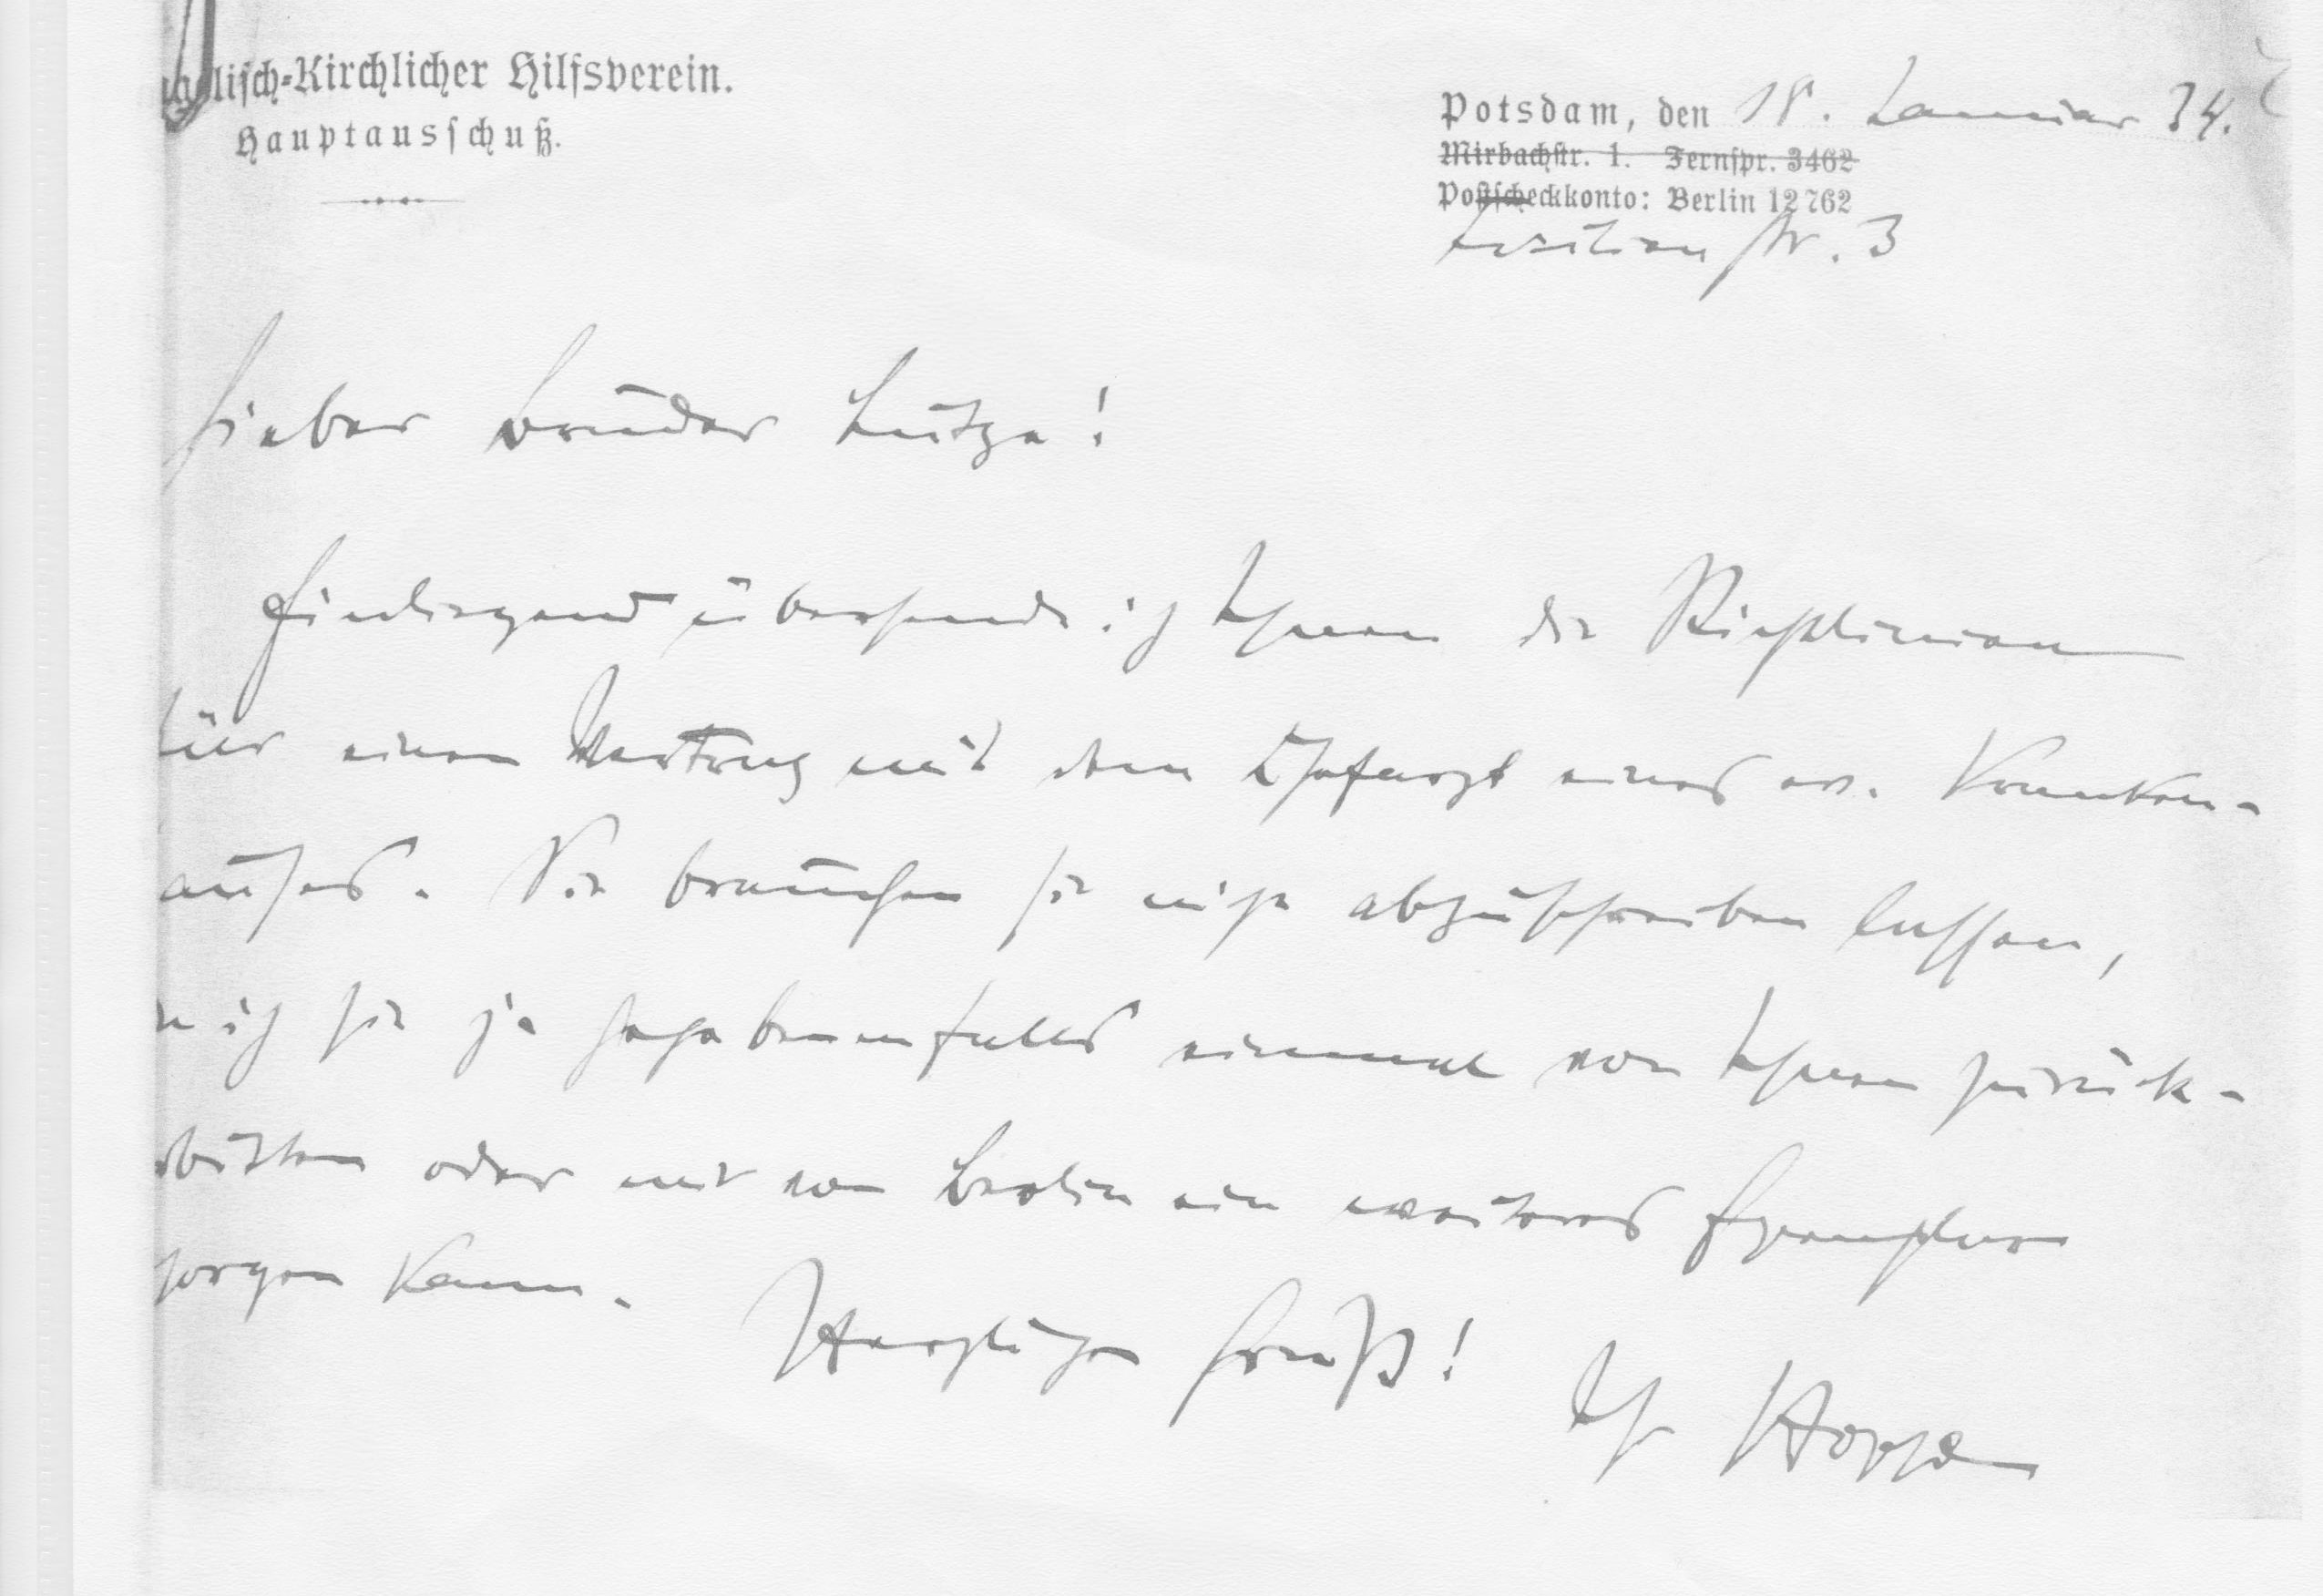 gelisch-Kirchlicher Hilfsverein.
Hauptausschuß.
Potsdam, den 18. Januar 34.
Mirbachstr. 1. Fernspr. 3462
Postscheckkonto: Berlin 12762
str. 3
Lieber Bruder Lutze!
Einliegend übersende ich Ihnen die Richtlinien
für einen Vertrag mit dem Chefarzt eines ev. Kranken-
auses. Sie brauchen sie nicht abzuschreiben lassen,
ich sie ja gegebenenfalls einmal von Ihnen zurück-
bitten oder mir von Berlin ein weiteres Exemplar
sorgen kann.
Herzlichen Gruß!
Ihr Hoppe